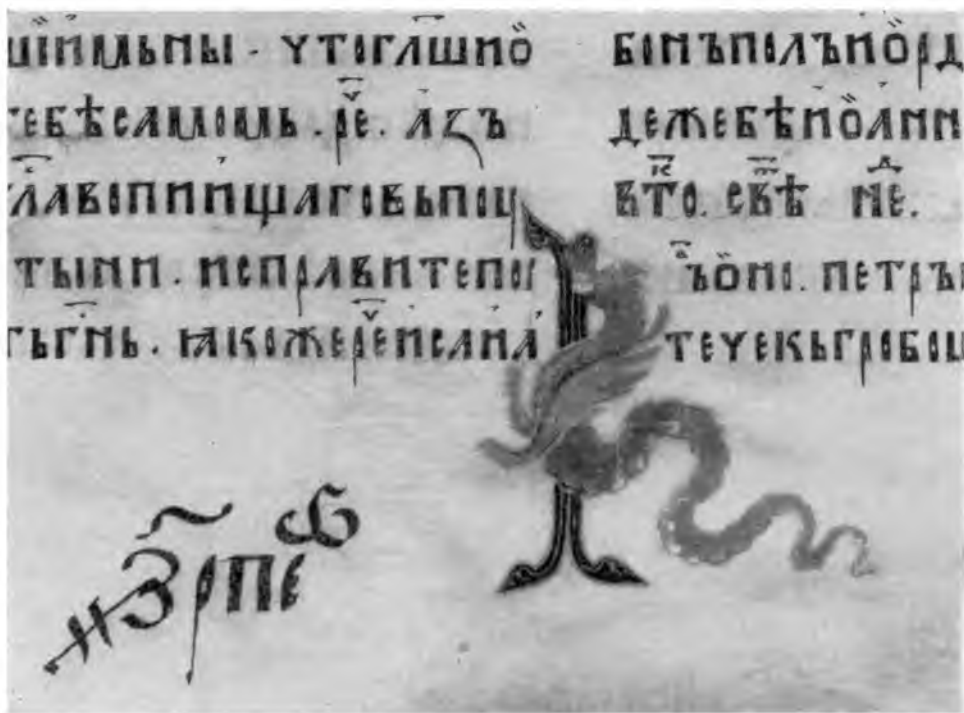 шіимьны · чтогл҃шиӧ
тебѣсамомь . рⷱ҇е . азъ
вопиищаговьпоу
тыни . исправитепоу
тьгн҃ь . ꙗкожерⷱ҇еисаиа
бонъполъиӧрд
дежебѣиӧанн
втⷦ҇о . свⷮ҇ѣ нⷣе .
ъӧно . петръ
течекьгробоу